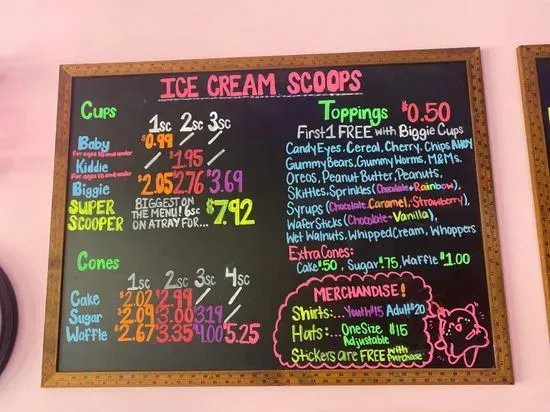 ICE CREAM SCOOPS
Cups
1sc 2sc 3sc
Baby $0.99 / /
For ages 10 and under
Kiddie / $1.95 /
For ages 10 and under
Biggie $2.05 2.76 $3.69
SUPER SCOOPER
BIGGEST ON
THE MENU! 6sc
ON A TRAY FOR... $7.92
Cones
1sc 2sc 3sc 4sc
Cake $2.02 $2.99 / /
Sugar $2.09 $3.00 $3.19 /
Waffle $2.67 $3.35 $4.00 $5.25
Toppings $0.50
First 1 FREE with Biggie Cups
Candy Eyes, Cereal, Cherry, Chips AHOY
Gummy Bears, Gummy Worms, M&Ms,
Oreos, Peanut Butter, Peanuts,
Skittles, Sprinkles (Chocolate & Rainbow),
Syrups (Chocolate, Caramel, Strawberry),
Wafer Sticks (Chocolate - Vanilla),
Wet Walnuts, Whipped Cream, Whoppers
Extra Cones:
Cake $.50, Sugar $.75, Waffle $1.00
MERCHANDISE!
Shirts:... Youth $15 Adult $20
Hats:... One Size Adjustable $15
Stickers are FREE with Purchase